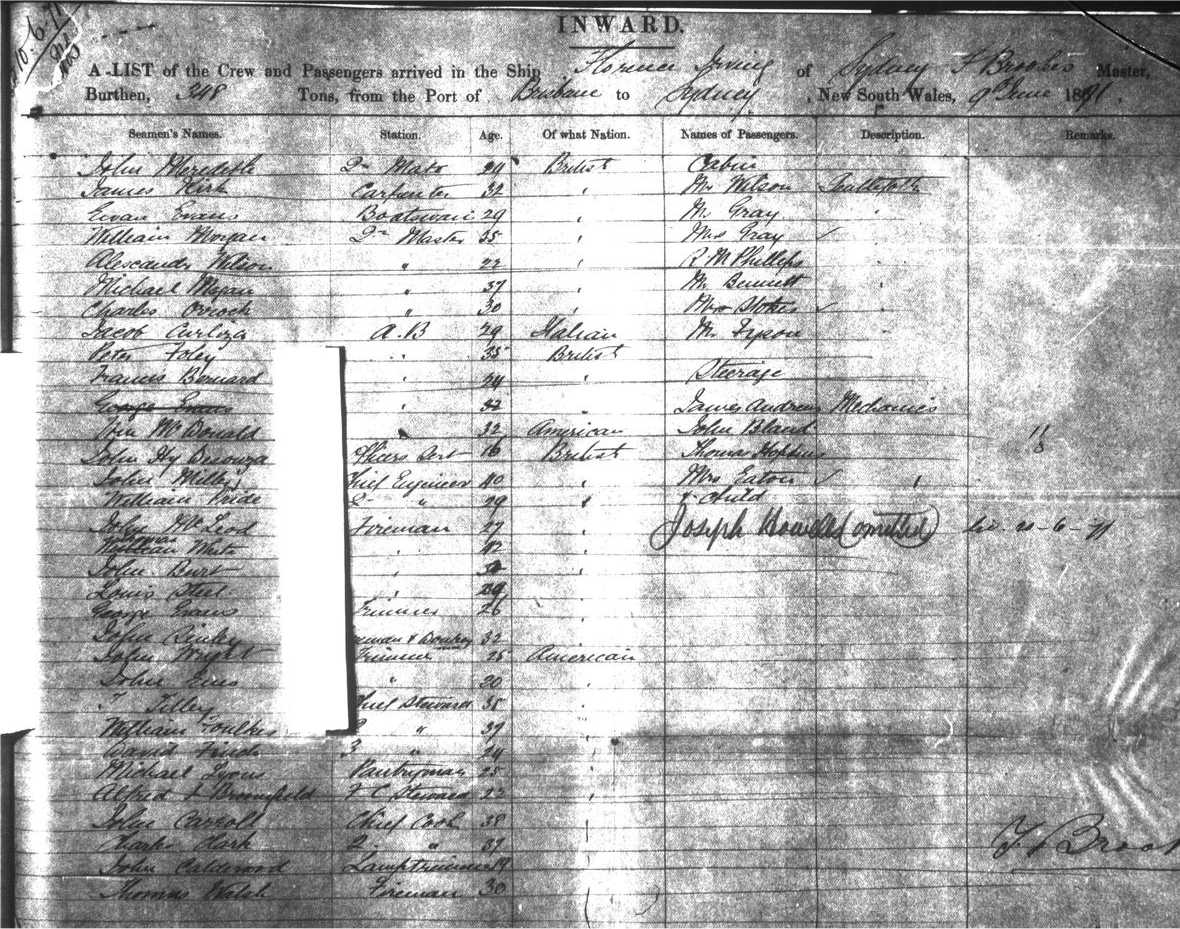 10.6.71
INWARD.
A LIST of the Crew and Passengers arrived in the Ship Florence Irving of Sydney F Brookes Master,
Burthen, 248 Tons, from the Port of Brisbane to Sydney, New South Wales, 9th June 1871
Seamen's Names. Station. Age. Of what Nation. Names of Passengers. Description. Remarks.
John Meredith 2nd Mate 29 British Cabin
James Kirk Carpenter 32 " Mr Wilson
Evan Evans Boatswain 29 " Mr Gray
William Morgan 2r Master 35 " Mrs Gray
Alexander Wilson " 22 " R M Phillips
Michael " 37 " Mr Bennett
Charles " 30 " Mrs Stokes
Jacob A.B 29 Italian Mr Tyson
Peter Foley " 35 British
Francis Bernard " 24 " Steerage
George Evans " 32 " James Andrews Mechanics
McDonald " 32 American John Bland
John Hy 16 British Thomas Hopkins
John Chief Engineer 40 " Mrs Eaton
William Pride 2 " 29 " & child
John McLeod Fireman 27 " Joseph Howells (omitted) 20-6-71
Thomas
William White " 42 "
John Burt " "
Louis Steel " 29 "
George Evans Trimmer 26 "
John 32 "
John Wright Trimmer 25 American
John " 20 "
Tilley Chief Steward 35 "
William Foulkes 2 " 37 "
David Finch 3 " 24 "
Michael Lyons Pantryman 25 "
Alfred J Bromfield F C Steward 22 "
John Carroll Chief Cook 38 "
Charles Clark 2 " 37 "
John Calderwood Lamptrimmer 19 "
Thomas Walsh Fireman 30 "
F Brook